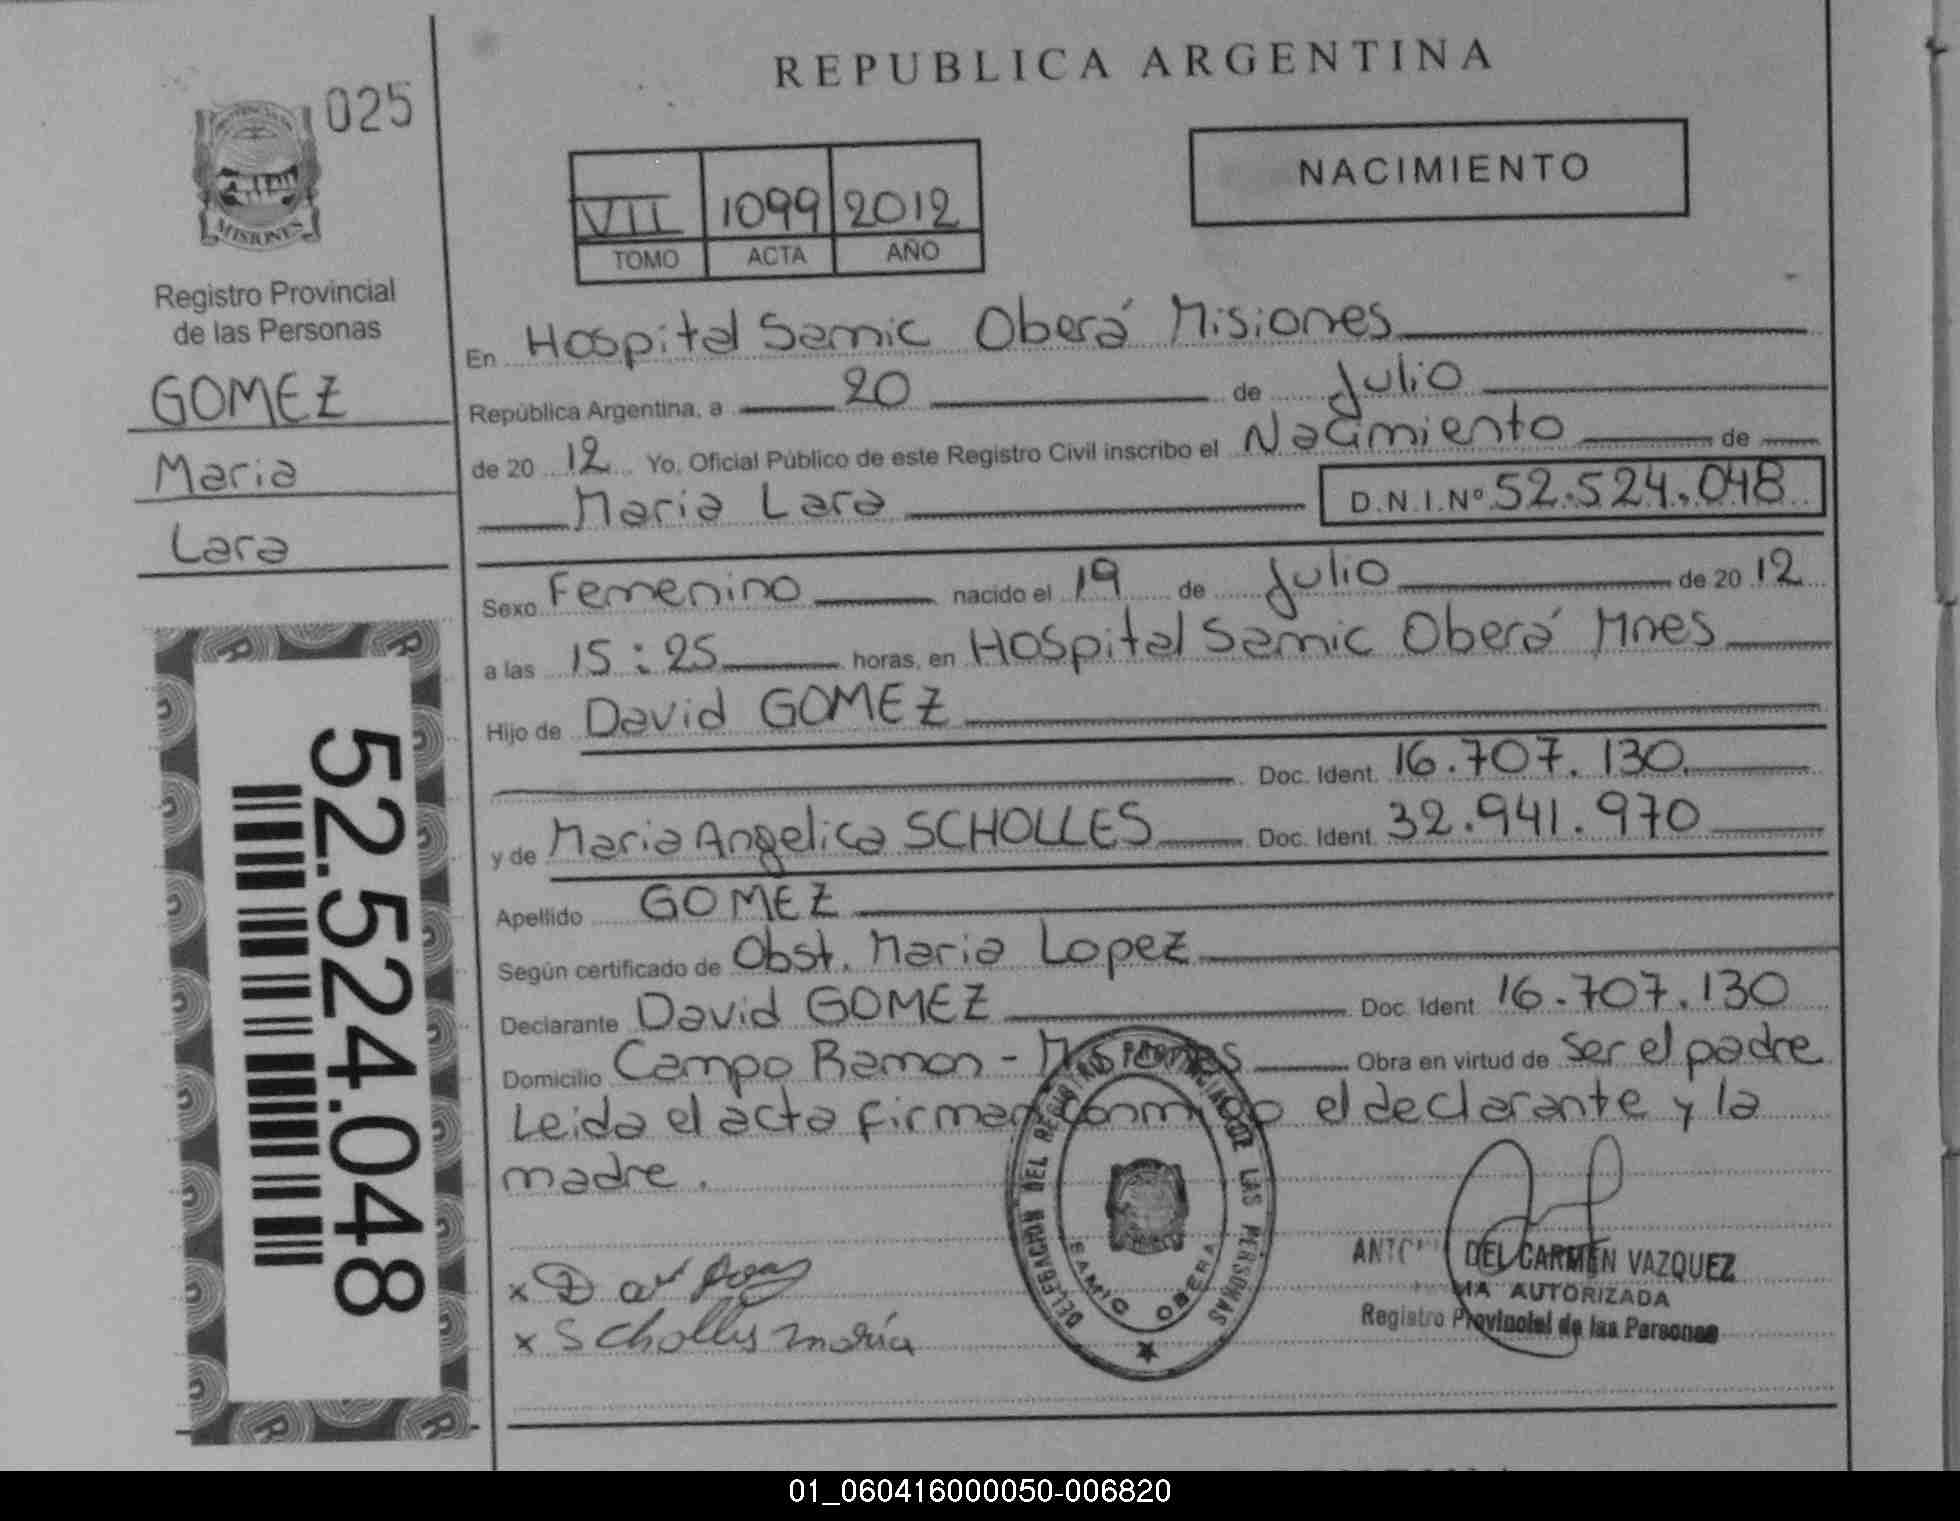 REPUBLICA ARGENTINA
025
NACIMIENTO
VII 1099 2012
TOMO ACTA AÑO
MISIONES
Registro Provincial
de las Personas
GOMEZ
Maria
Lara
52.524.048
En Hospital Samic Oberá Misiones
República Argentina, a 20 de Julio
de 20 12 Yo, Oficial Público de este Registro Civil inscribo el Nacimiento de
Maria Lara D.N.I.Nº 52.524.048
Sexo Femenino nacido el 19 de Julio de 20 12
a las 15:25 horas, en Hospital Samic Oberá Mnes
Hijo de David GOMEZ
Doc. Ident. 16.707.130
y de Maria Angelica SCHOLLES Doc. Ident. 32.941.970
Apellido GOMEZ
Según certificado de Obst. Maria Lopez
Declarante David GOMEZ Doc. Ident. 16.707.130
Domicilio Campo Ramon - Misiones Obra en virtud de ser el padre
Leida el acta firman conmigo el declarante y la
madre.
DELEGACION DEL REGISTRO PROVINCIAL DE LAS PERSONAS
SAMIC OBERA
x
x Scholles maría
DEL CARMEN VAZQUEZ
AUTORIZADA
Registro Provincial de las Personas
01_060416000050-006820